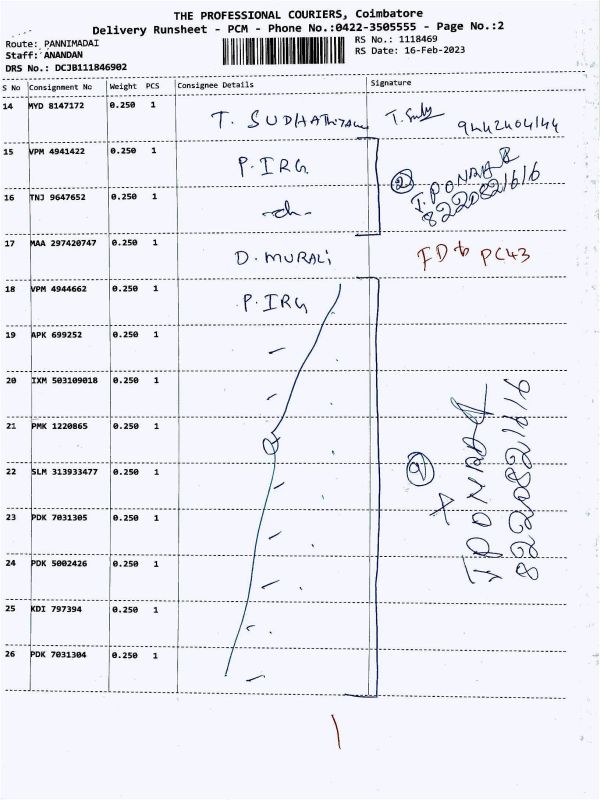 THE PROFESSIONAL COURIERS, Coimbatore
Delivery Runsheet - PCM - Phone No.:0422-3505555 - Page No.:2
Route: PANNIMADAI
RS No.: 1118469
Staff: ANANDAN
RS Date: 16-Feb-2023
DRS No.: DCJB111846902
S No Consignment No Weight PCS Consignee Details Signature
14 MYD 8147172 0.250 1 T. SUDHA
15 VPM 4941422 0.250 1 P. IRG
16 TNJ 9647652 0.250 1 2 8220821616
17 MAA 297420747 0.250 1 D. MURALi PC43
18 VPM 4944662 0.250 1 P. IRG
19 APK 699252 0.250 1
20 IXM 503109018 0.250 1
21 PMK 1220865 0.250 1
22 SLM 313933477 0.250 1 9
23 PDK 7031305 0.250 1
24 PDK 5002426 0.250 1
25 KDI 797394 0.250 1
26 PDK 7031304 0.250 1
8220821616